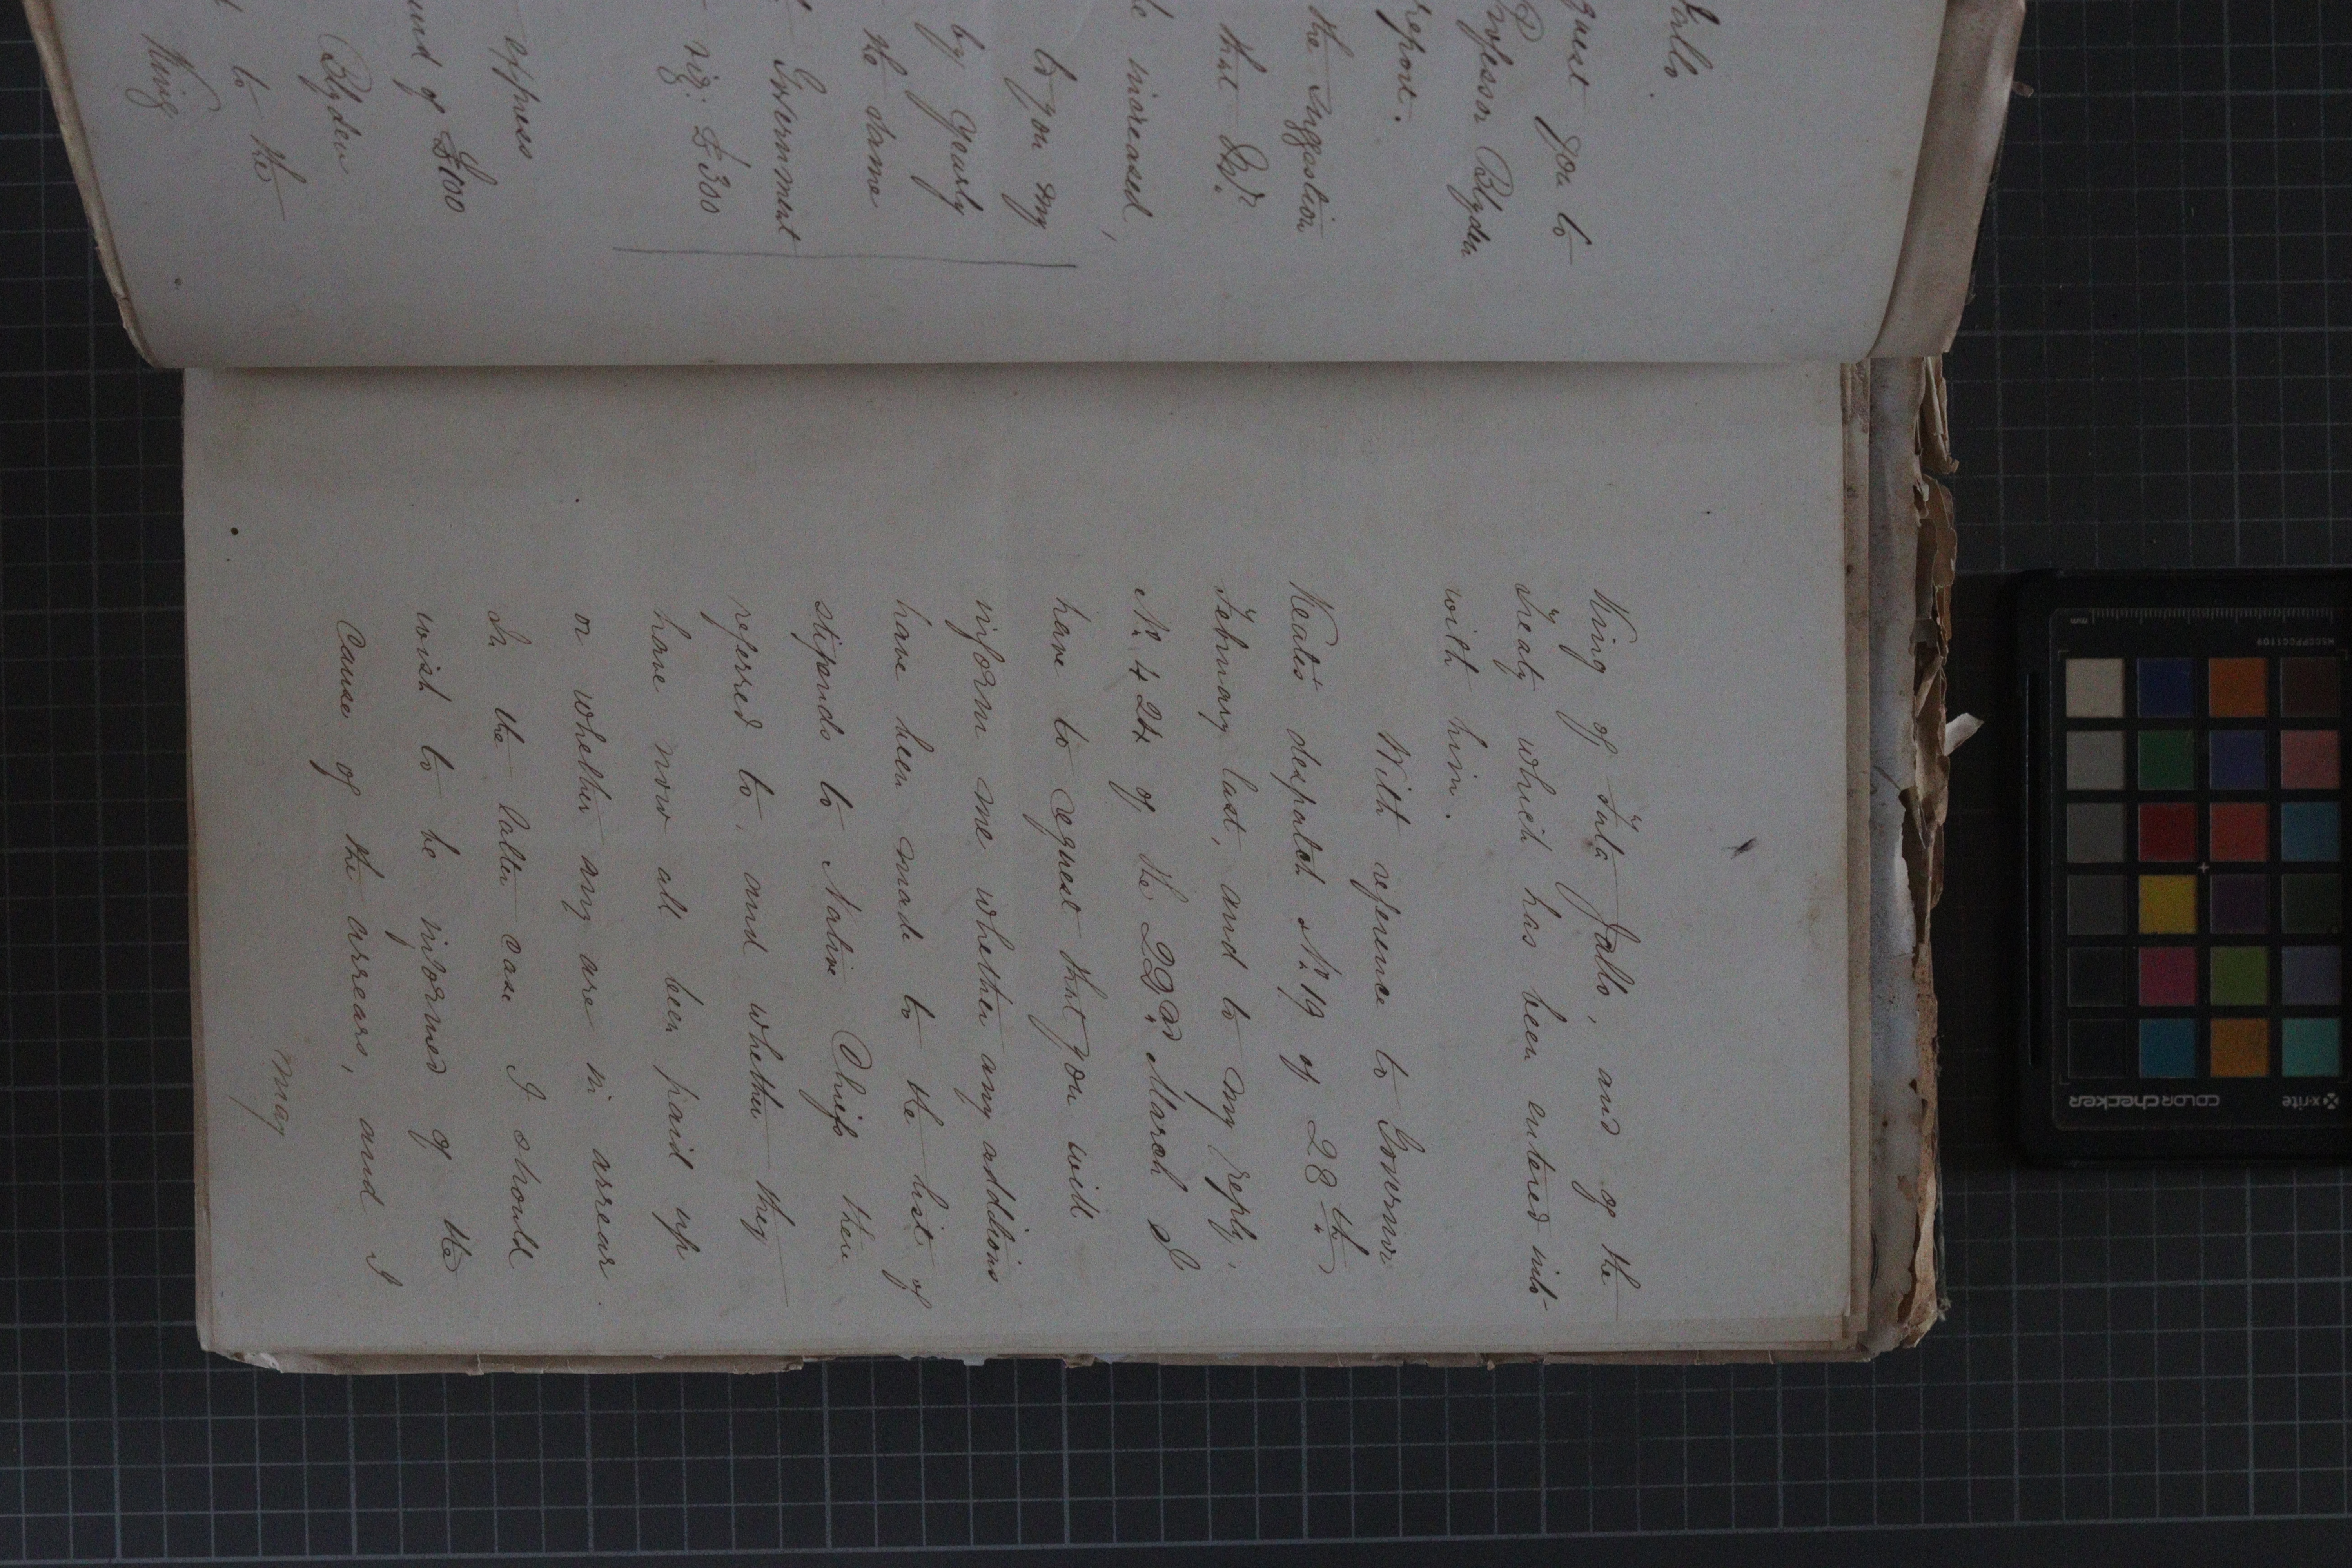 Jallo.
quest you to
Professor Blyden
report.
the suggestion
that Dr.
be increased,
to you my
by yearly
the same
Government
viz: £300
express
und of £100
Blyden
to the
King
King of Futa Jallo, and of the
Treaty which has been entered into
with him.
With reference to Governor
Keate's despatch No. 19 of 28th.
February last, and to my reply,
No. 424 of the 22nd. March I
have to request that you will
inform me whether any additions
have been made to the list of
stipends to Native Chiefs there
referred to, and whether they
have now all been paid up
or whether any are in arrear.
In the latter case I should
wish to be informed of the
cause of the arrears, and I
may